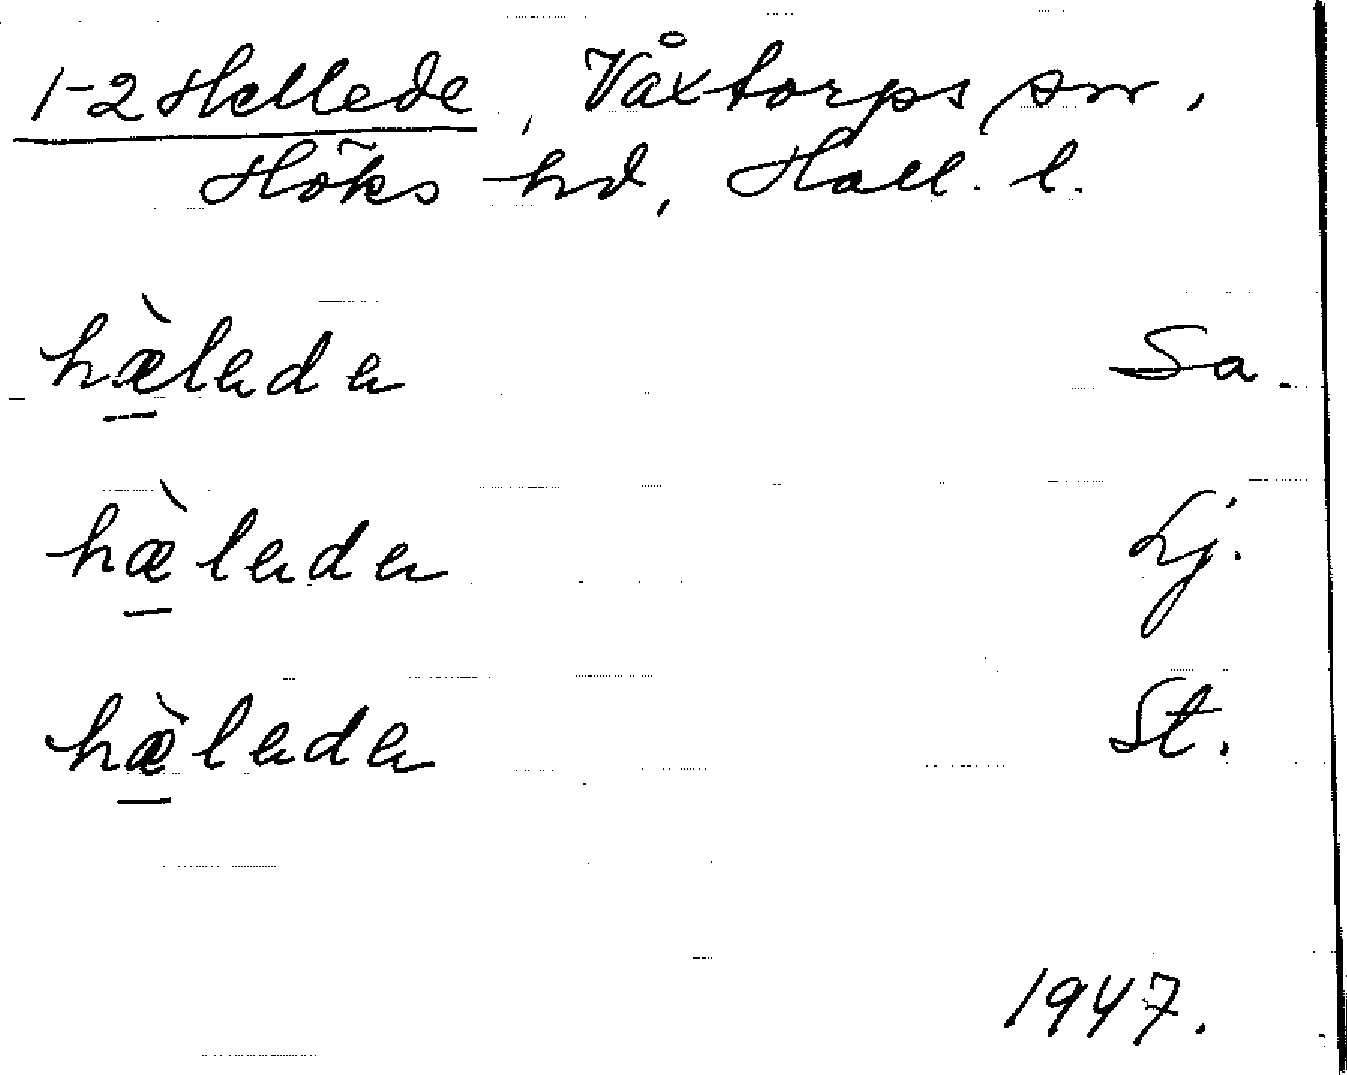 1-2 Hellede, Våxtorps sn.
Höks hd, Hall. l.
hæ̀ledə Sa.
hæ̀ledə Lj.
hæ̀ledə St.
1947.